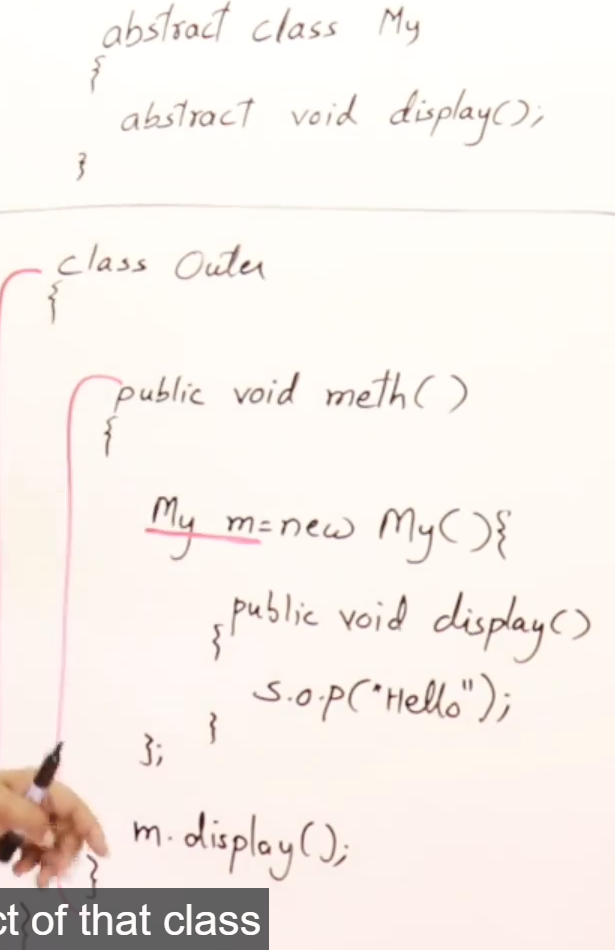 abstract class My
{
abstract void display();
}
class Outer
{
public void meth()
{
My m=new My(){
public void display()
{
S.o.p("Hello");
}
};
m.display();
}
}
ct of that class